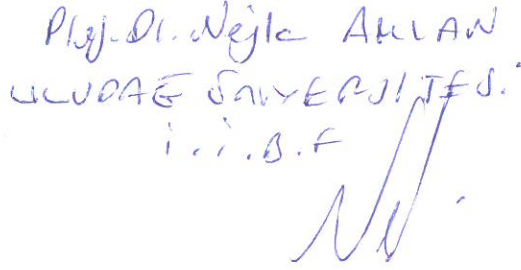 Prof. Dr. Nejla
ULUDAĞ ÜNİVERSİTESİ
İ.İ.B.F